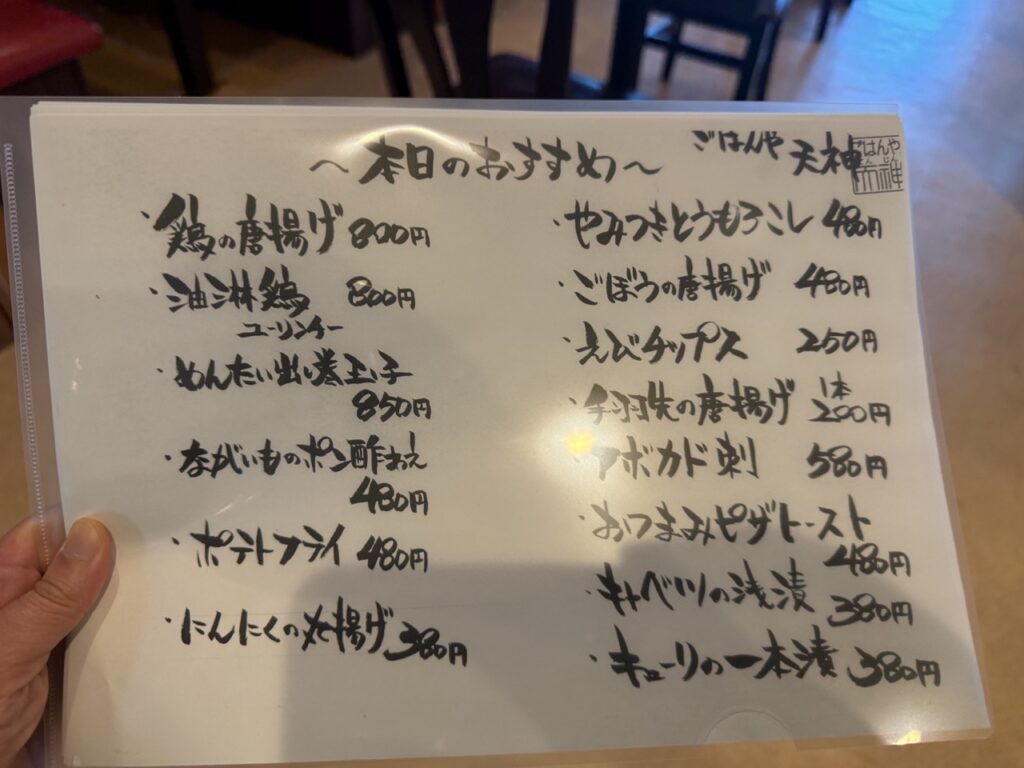 ～本日のおすすめ～
ごはんや 天神
ごはんや
・鶏の唐揚げ 800円
・油淋鶏 800円
ユーリンチー
・めんたい出し巻玉子
850円
・ながいものポン酢あえ
480円
・ポテトフライ 480円
・にんにくの丸揚げ 380円
・やみつきとうもろこし 480円
・ごぼうの唐揚げ 480円
・えびチップス 250円
・手羽先の唐揚げ 1本 200円
・アボカド刺 580円
・おつまみピザトースト
480円
・キャベツの浅漬 380円
・キューリの一本漬 380円